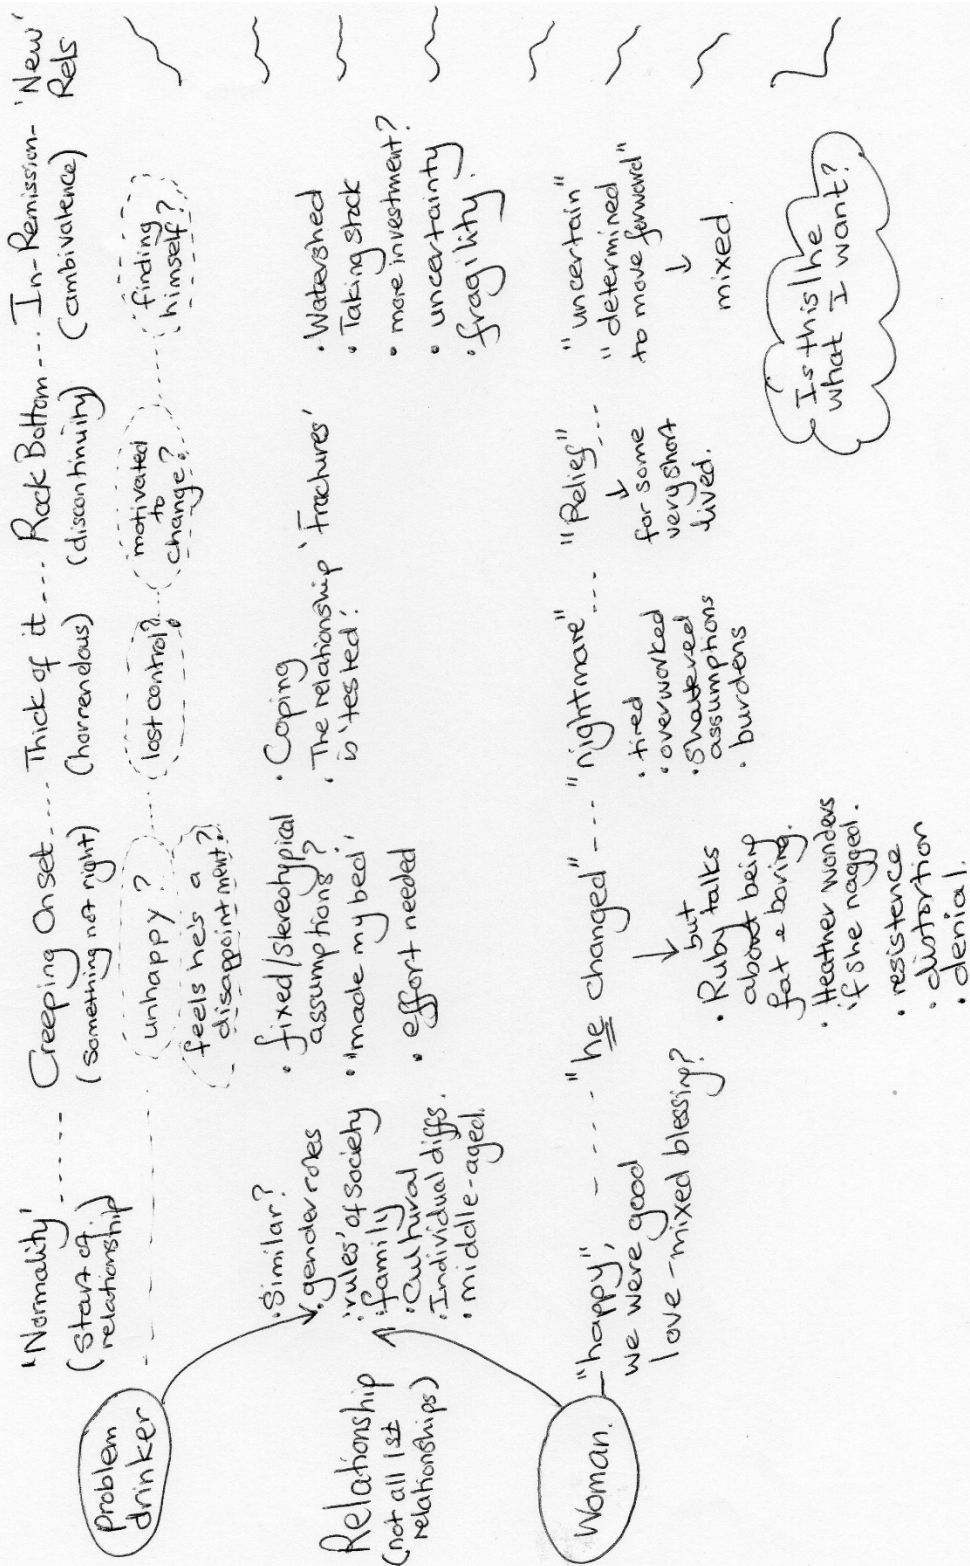 'Normality' ...... Creeping Onset .... Thick of it .... Rock Bottom .... In-Remission- 'New'
(Start of relationship)
(something not right)
(horrendous)
(discontinuity)
(ambivalence)
Rels
Problem
drinker
unhappy?
feels he's a
disappointment?
lost control?
motivated
to
change?
finding
himself?
Relationship
(not all 1st
relationships)
• Similar?
• gender roles
• 'rules' of society
• family
• cultural
• Individual diffs.
• middle-aged.
• fixed/stereotypical
assumptions?
• "made my bed'
• effort needed
• Coping
• The relationship
is 'tested'.
'Fractures'
• Watershed
• Taking stock
• more investment?
• uncertainty
• fragility.
Woman.
"happy",
we were good
love - mixed blessing?
"he changed"
↓ but
• Ruby talks
about being
fat & boring.
• Heather wonders
if she nagged.
• resistence
• distortion
• denial.
"nightmare"
• tired
• overworked
• Shattered
assumptions
• burdens
"Relief"
↓
for some
very short
lived.
"uncertain"
"determined
to move forward"
↓
mixed.
Is this/he
what I want?